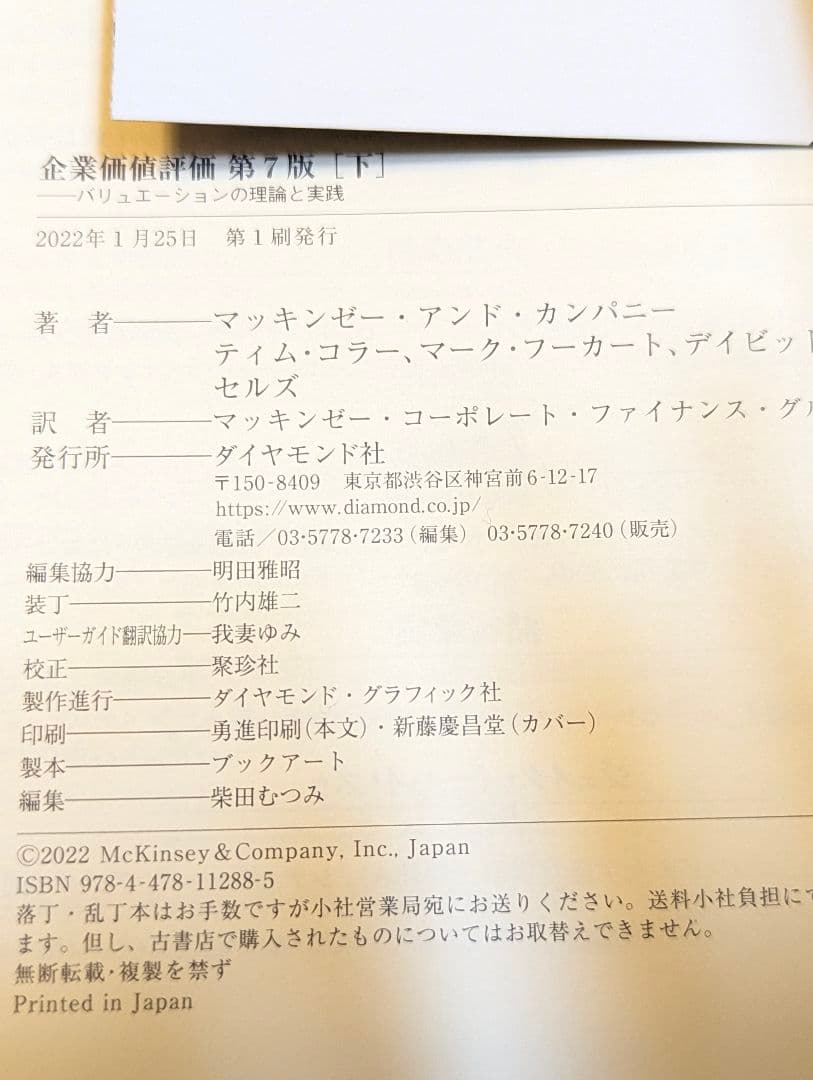 企業価値評価 第7版［下］
――バリュエーションの理論と実践
2022年1月25日　第1刷発行
著　者――――マッキンゼー・アンド・カンパニー
ティム・コラー、マーク・フーカート、デイビット
セルズ
訳　者――――マッキンゼー・コーポレート・ファイナンス・グル
発行所――――ダイヤモンド社
〒150-8409　東京都渋谷区神宮前6-12-17
https://www.diamond.co.jp/
電話／03・5778・7233（編集）　03・5778・7240（販売）
編集協力――――明田雅昭
装丁――――――竹内雄二
ユーザーガイド翻訳協力―我妻ゆみ
校正――――――聚珍社
製作進行――――ダイヤモンド・グラフィック社
印刷――――――勇進印刷（本文）・新藤慶昌堂（カバー）
製本――――――ブックアート
編集――――――柴田むつみ
©2022 McKinsey & Company, Inc., Japan
ISBN 978-4-478-11288-5
落丁・乱丁本はお手数ですが小社営業局宛にお送りください。送料小社負担にて
ます。但し、古書店で購入されたものについてはお取替えできません。
無断転載・複製を禁ず
Printed in Japan